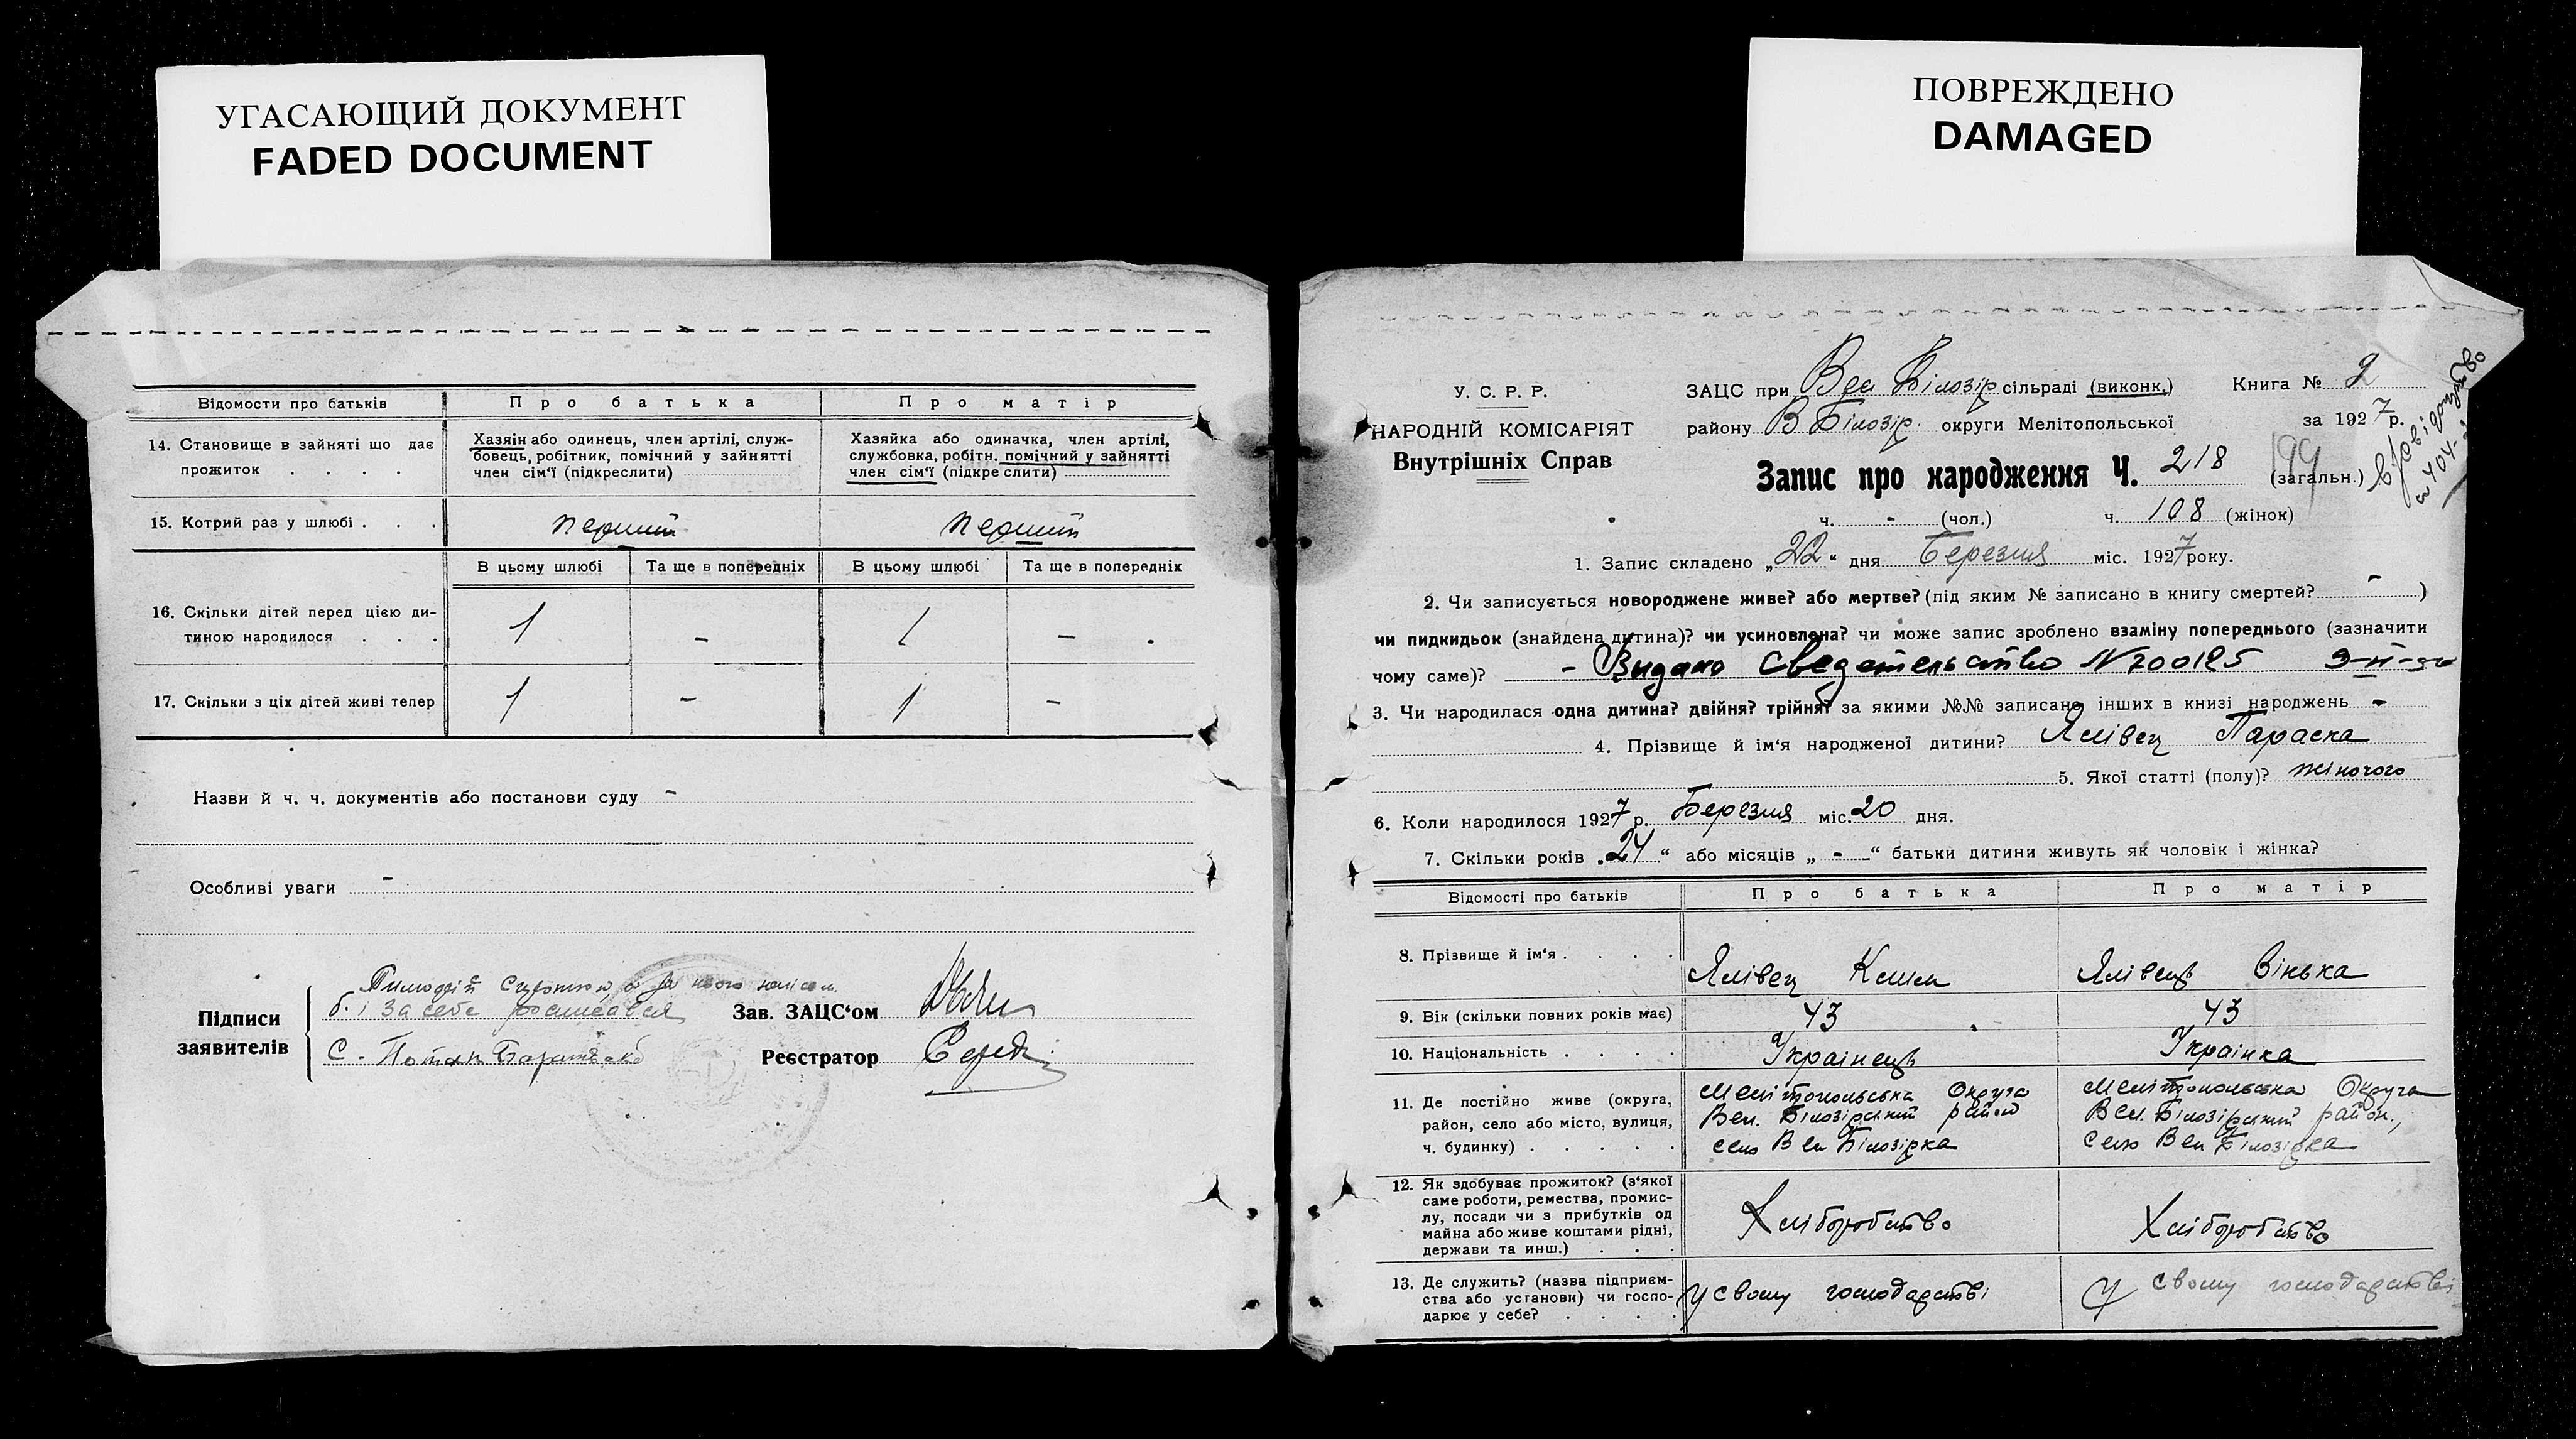 УГАСАЮЩИЙ ДОКУМЕНТ
FADED DOCUMENT
ПОВРЕЖДЕНО
DAMAGED
Відомости про батьків
Про батька
Про матір
14. Становище в зайняті що дає прожиток . . . .
Хазяін або одинець, член артілі, служ-
бовець, робітник, помічний у зайнятті
член сім‘ї (підкреслити)
Хазяйка або одиначка, член артілі,
службовка, робітн. помічний у зайнятті
член сім‘ї (підкреслити)
15. Котрий раз у шлюбі . . .
перший
перший
В цьому шлюбі
Та ще в попередніх
В цьому шлюбі
Та ще в попередніх
16. Скільки дітей перед цією ди-
тиною народилося . . .
1 - 1 -
17. Скільки з ціх дітей живі тепер
1 - 1 -
Назви й ч. ч. документів або постанови суду -
Особливі уваги -
Підписи
заявителів
б. і За себе росписався
С - Потап
Зав. ЗАЦС‘ом
Реєстратор
У. С. Р. Р.
НАРОДНІЙ КОМІСАРІЯТ
Внутрішніх Справ
ЗАЦС при Вел Білозір сільраді (виконк.)
Книга № 2
району В Білозір. округи Мелітопольської
за 1927 р.
Запис про народження Ч. 218 (загальн.)
199
ч. - (чол.) ч. 108 (жінок)
1. Запис складено „22“ дня Березня міс. 1927 року.
2. Чи записується новороджене живе? або мертве? (під яким № записано в книгу смертей? - )
чи пидкидьок (знайдена дитина)? чи усиновлена? чи може запис зроблено взаміну попереднього (зазначити
чому саме)? - Видано Сведетельство N 700125
3. Чи народилася одна дитина? двійня? трійня? за якими №№ записано інших в книзі народжень -
4. Прізвище й ім‘я народженої дитини? Ялівец Параска
5. Якої статті (полу)? жіночого
6. Коли народилося 1927 р. Березня міс. 20 дня.
7. Скільки років „24“ або місяців „ - “ батьки дитини живуть як чоловік і жінка?
Відомості про батьків
Про батька
Про матір
8. Прізвище й ім‘я . . . .
Ялівец Клим
Ялівець Вінька
9. Вік (скільки повних років має)
43
43
10. Національність . . . .
Українець
Українка
11. Де постійно живе (округа,
район, село або місто, вулиця,
ч. будинку) . . . . .
Мелітопольська Округа
Вел. Білозірський район
село Вел Білозірка
Мелітопольська Округа
Вел. Білозірський район,
село Вел Білозірка
12. Як здобуває прожиток? (з‘якої
саме роботи, ремества, промис-
лу, посади чи з прибутків од
майна або живе коштами рідні,
держави та инш.) . . .
Хліборобство
Хліборобство
13. Де служить? (назва підприєм-
ства або установи) чи госпо-
дарює у себе? . . . .
у свому господарстві
у свому господарстві